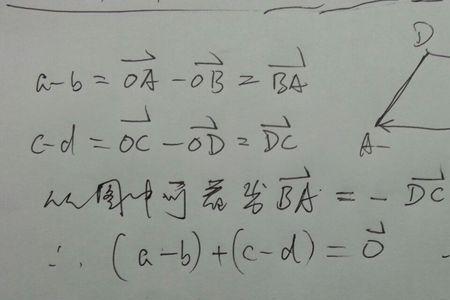 a-b = \vec{OA} - \vec{OB} = \vec{BA}
D
c-d = \vec{OC} - \vec{OD} = \vec{DC}
A
从图中可看出 \vec{BA} = - \vec{DC}
∴ (a-b)+(c-d) = \vec{0}